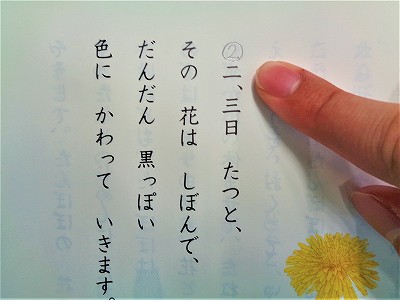 ②二、三日　たつと、
その　花は　しぼんで、
だんだん　黒っぽい
色に　かわって　いきます。